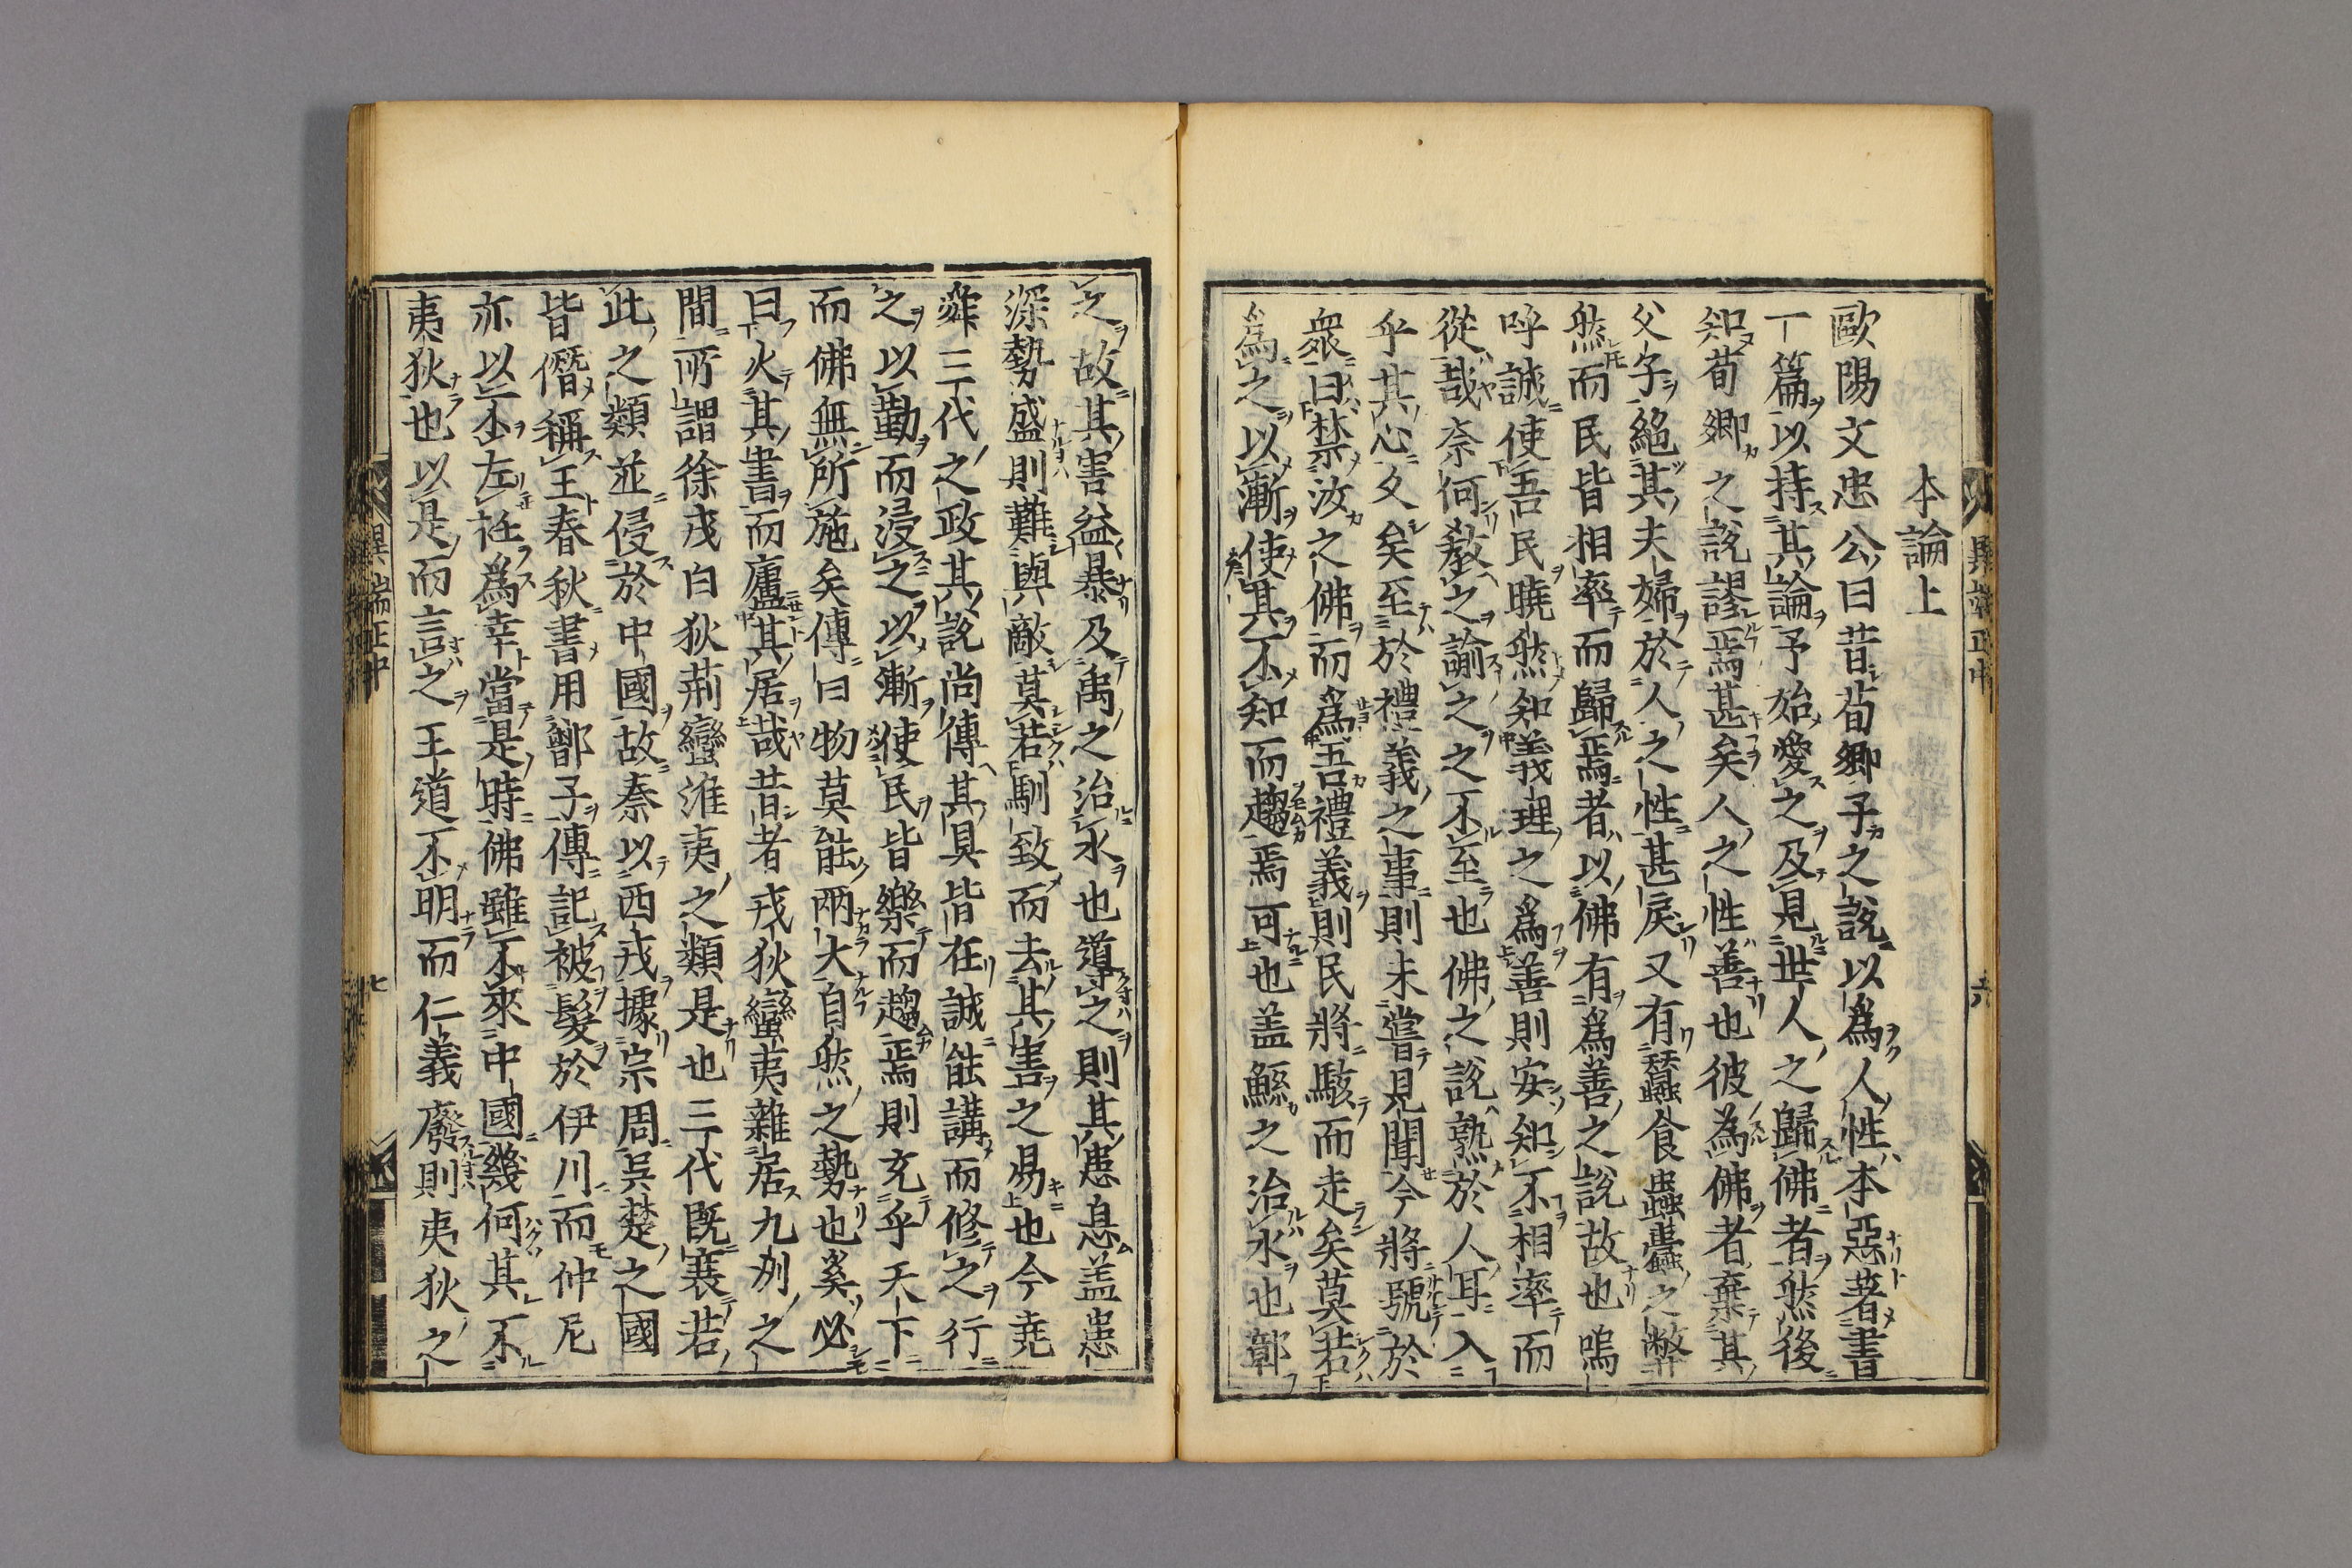 本論上
歐陽文忠公曰昔荀卿子之說以爲人性本惡著書
一篇以持其論予始愛之及見世人之歸佛者然後
知荀卿之說謬焉甚矣人之性善也彼為佛者棄其
父子絕其夫婦於人之性甚戾又有蠶食蟲蠹之弊
然而民皆相率而歸焉者以佛有爲善之說故也嗚
呼誠使吾民曉然知義理之爲善則安知不相率而
從哉奈何敎之諭之之不至也佛之說熟於人耳入
乎其心久矣至於禮義之事則未嘗見聞今將號於
衆曰禁汝之佛而爲吾禮義則民將駭而走矣莫若
爲之以漸使其不知而趨焉可也盖鯀之治水也鄣
異端正中
六
之故其害益暴及禹之治水也導之則其患息盖患
深勢盛則難與敵莫若馴致而去其害之易也今堯
舜三代之政其說尚傳其具皆在誠能講而修之行
之以勤而浸之以漸使民皆樂而趨焉則充乎天下
而佛無所施矣傳曰物莫能兩大自然之勢也奚必
曰火其書而廬其居哉昔者戎狄蠻夷雜居九州之
間所謂徐戎白狄荊蠻淮夷之類是也三代既衰若
此之類並侵於中國故秦以西戎據宗周吳楚之國
皆僭稱王春秋書用鄫子傳記被髮於伊川而仲尼
亦以不左衽爲幸當是時佛雖不來中國幾何其不
夷狄也以是而言之王道不明而仁義廢則夷狄之
異端正中
七